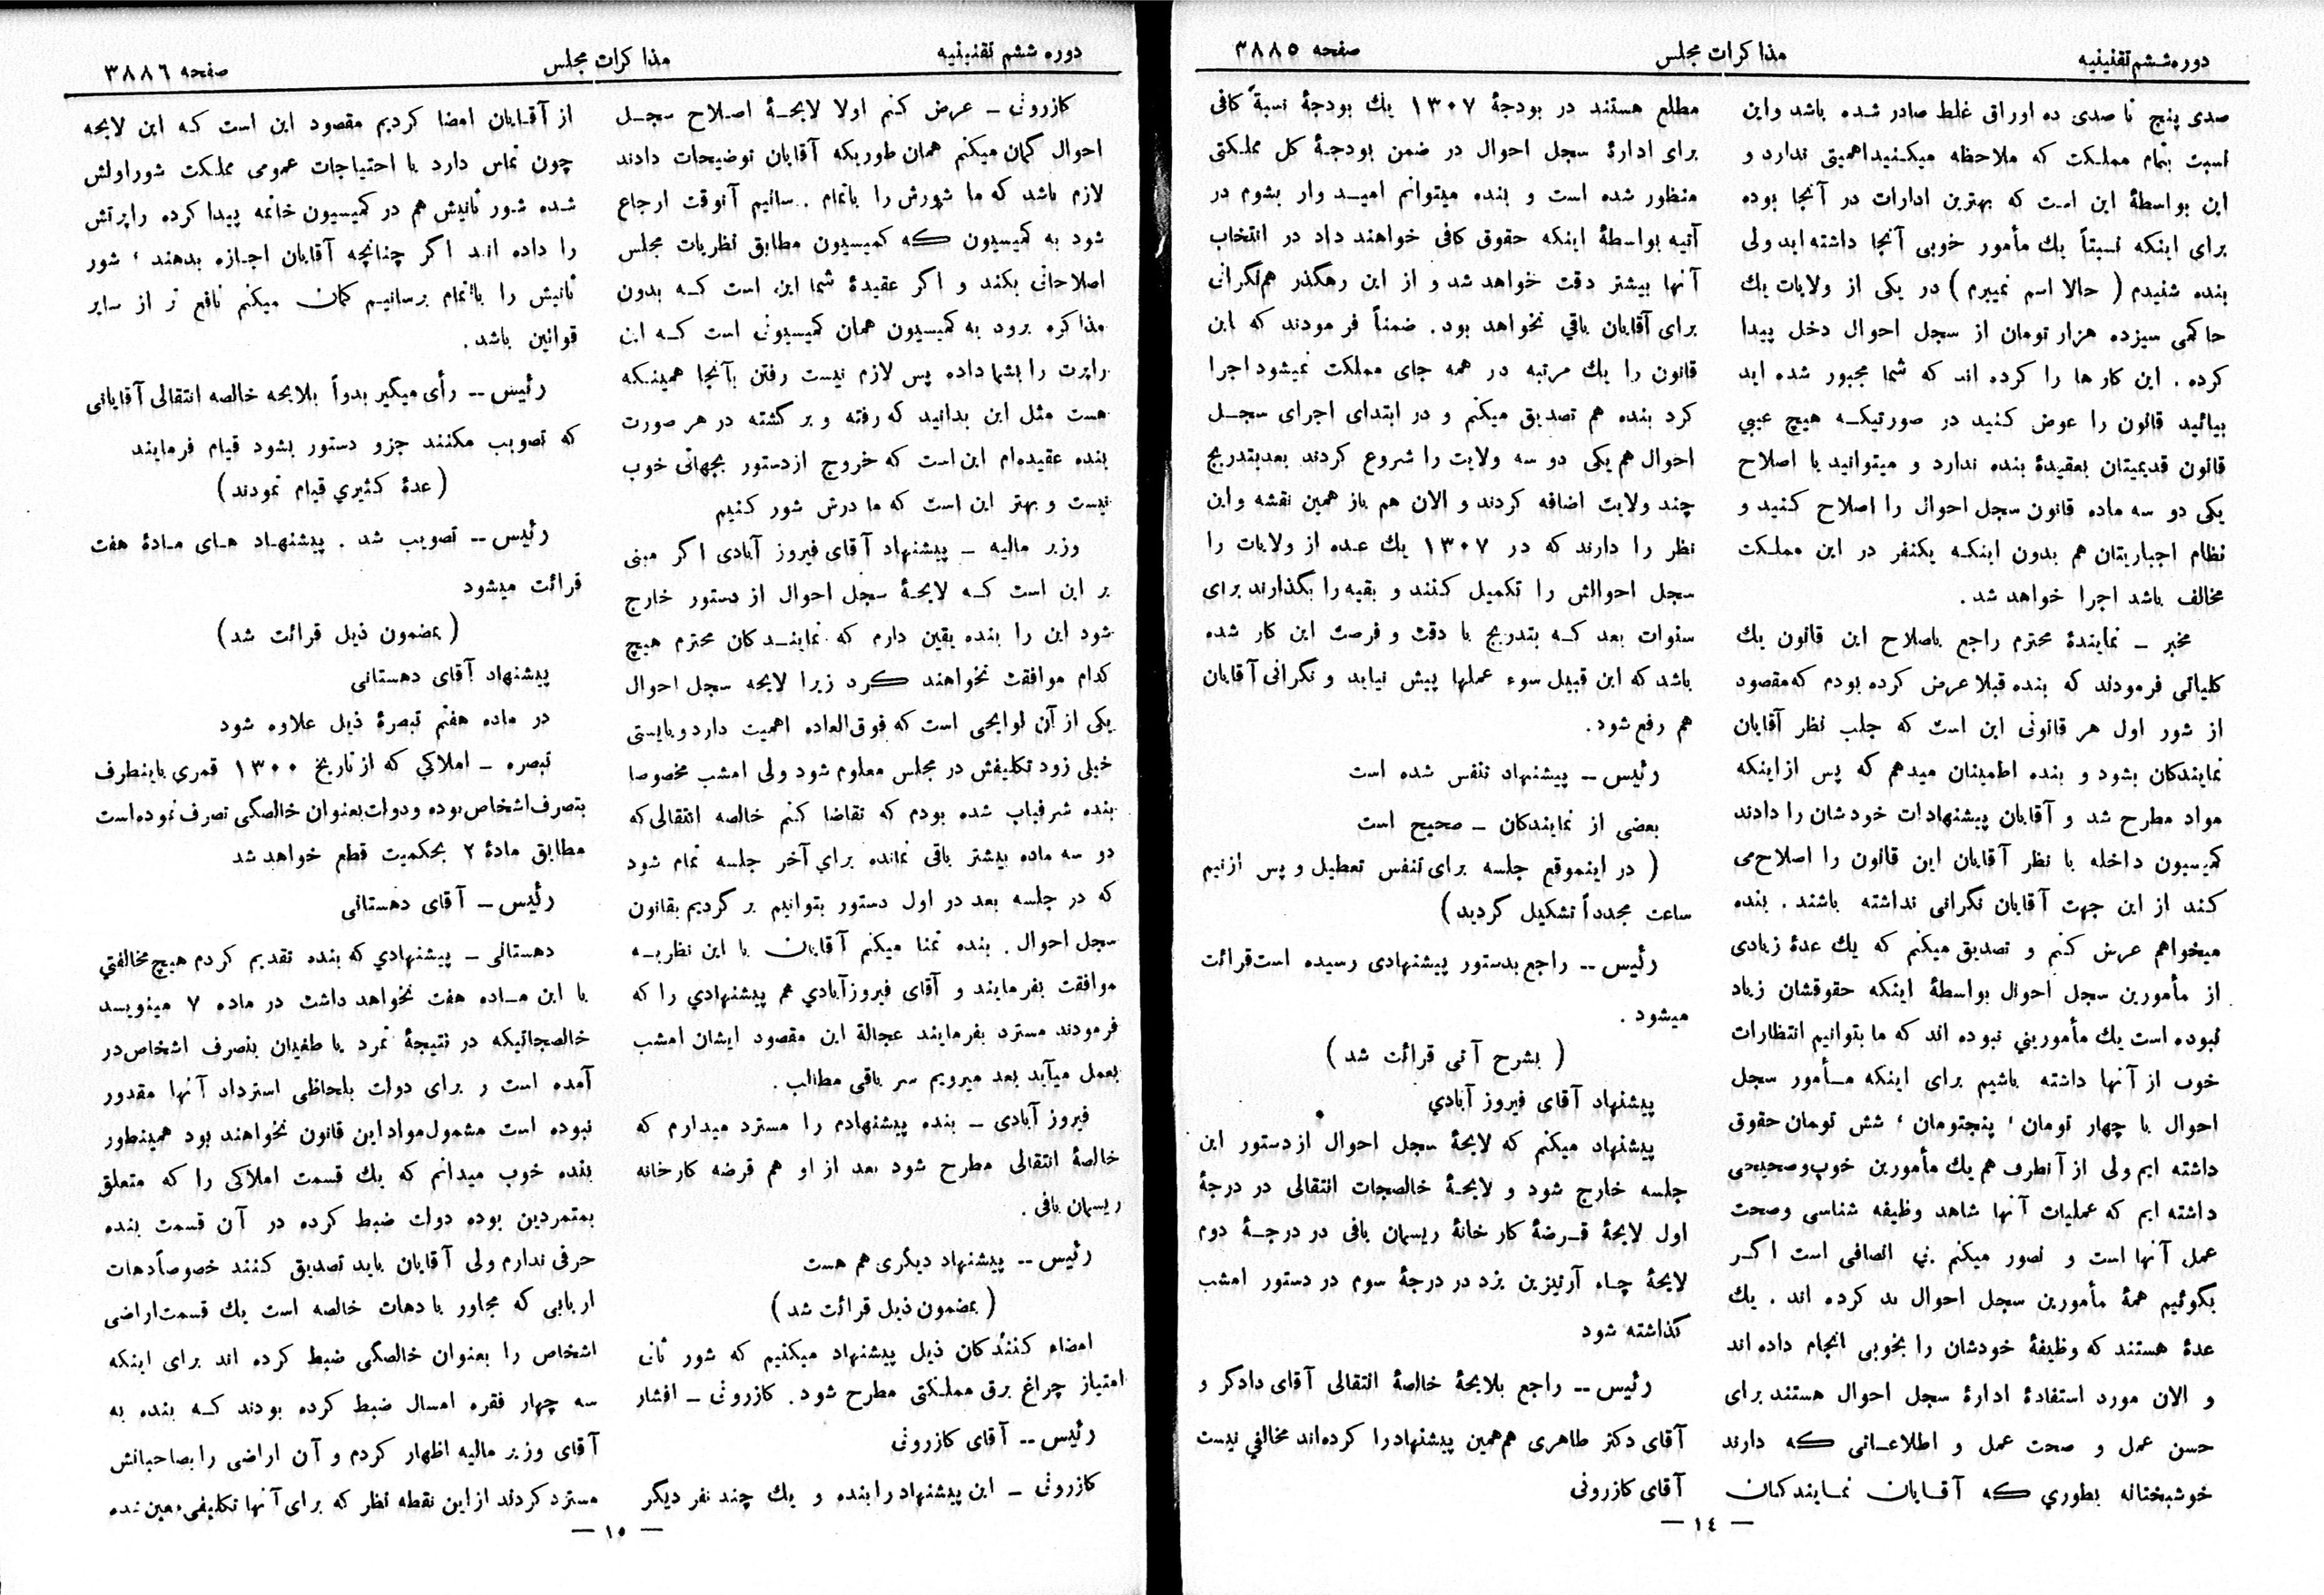 دوره ششم تقنینیه
مذاکرات مجلس
صفحه ۳۸۸۵
صدی پنج تا صدی ده اوراق غلط صادر شده باشد واین
نسبت بتمام مملکت که ملاحظه میکنیداهمیتی ندارد و
این بواسطهٔ این است که بهترین ادارات در آنجا بوده
برای اینکه نسبتاً یك مأمور خوبی آنجا داشته‌اید ولی
بنده شنیدم ( حالا اسم نمیبرم ) در یکی از ولایات یك
حاکمی سیزده هزار تومان از سجل احوال دخل پیدا
کرده . این کار ها را کرده اند که شما مجبور شده اید
بیائید قانون را عوض کنید در صورتیکه هیچ عیبی
قانون قدیمیتان بعقیدهٔ بنده ندارد و میتوانید با اصلاح
یکی دو سه ماده قانون سجل احوال را اصلاح کنید و
نظام اجباریتان هم بدون اینکه یکنفر در این مملکت
مخالف باشد اجرا خواهد شد .
مخبر – نمایندهٔ محترم راجع باصلاح این قانون یك
کلیاتی فرمودند که بنده قبلا عرض کرده بودم که مقصود
از شور اول هر قانونی این است که جلب نظر آقایان
نمایندکان بشود و بنده اطمینان میدهم که پس ازاینکه
مواد مطرح شد و آقایان پیشنهادات خودشان را دادند
کمیسیون داخله با نظر آقایان این قانون را اصلاح می
کند از این جهت آقایان نگرانی نداشته باشند . بنده
میخواهم عرض کنم و تصدیق میکنم که یك عدهٔ زیادی
از مأمورین سجل احوال بواسطهٔ اینکه حقوقشان زیاد
نبوده است یك مأمورینی نبوده اند که ما بتوانیم انتظارات
خوب از آنها داشته باشیم برای اینکه مأمور سجل
احوال با چهار تومان ، پنجتومان ، شش تومان حقوق
داشته ایم ولی از آنطرف هم یك مأمورین خوب و صحیحی
داشته ایم که عملیات آنها شاهد وظیفه شناسی وصحت
عمل آنها است و تصور میکنم بی انصافی است اگر
بگوئیم همهٔ مأمورین سجل احوال بد کرده اند . یك
عدهٔ هستند که وظیفهٔ خودشان را بخوبی انجام داده اند
و الان مورد استفادهٔ ادارهٔ سجل احوال هستند برای
حسن عمل و صحت عمل و اطلاعاتی که دارند
خوشبختانه بطوري که آقایان نمایندکان
مطلع هستند در بودجهٔ ۱۳۰۷ یك بودجهٔ نسبةً کافی
برای ادارهٔ سجل احوال در ضمن بودجهٔ کل مملکتی
منظور شده است و بنده میتوانم امیدوار بشوم در
آتیه بواسطهٔ اینکه حقوق کافی خواهند داد در انتخاب
آنها بیشتر دقت خواهد شد و از این رهگذر هم نگرانی
برای آقایان باقي نخواهد بود . ضمناً فرمودند که این
قانون را یك مرتبه در همه جای مملکت نمیشود اجرا
کرد بنده هم تصدیق میکنم و در ابتدای اجرای سجل
احوال هم یکی دو سه ولایت را شروع کردند بعد بتدریج
چند ولایت اضافه کردند و الان هم باز همین نقشه و این
نظر را دارند که در ۱۳۰۷ یك عده از ولایات را
سجل احوالش را تکمیل کنند و بقیه را بگذارند برای
سنوات بعد که بتدریج با دقت و فرصت این کار شده
باشد که این قبیل سوء عملها پیش نیاید و نگرانی آقایان
هم رفع شود .
رئیس -- پیشنهاد تنفس شده است
بعضی از نمایندکان – صحیح است
( در اینموقع جلسه برای تنفس تعطیل و پس ازنیم
ساعت مجدداً تشکیل گردید )
رئیس -- راجع بدستور پیشنهادی رسیده است قرائت
میشود .
( بشرح آتی قرائت شد )
پیشنهاد آقای فیروز آبادي
پیشنهاد میکنم که لایحهٔ سجل احوال از دستور این
جلسه خارج شود و لایحهٔ خالصجات انتقالی در درجهٔ
اول لایحهٔ قرضهٔ کار خانهٔ ریسمان بافی در درجهٔ دوم
لایحهٔ چاه آرتیزین یزد در درجهٔ سوم در دستور امشب
گذاشته شود
رئیس -- راجع بلایحهٔ خالصهٔ انتقالی آقای دادکر و
آقای دکتر طاهری هم همین پیشنهاد را کرده‌اند مخالفي نیست
آقای کازرونی
— ۱۴ —
دوره ششم تقنینیه
مذاکرات مجلس
صفحه ۳۸۸۶
کازرونی – عرض کنم اولا لایحهٔ اصلاح سجل
احوال گمان میکنم همان طوریکه آقایان توضیحات دادند
لازم باشد که ما شورش را باتمام برسانیم آنوقت ارجاع
شود به کمیسیون که کمیسیون مطابق نظریات مجلس
اصلاحاتی بکند و اگر عقیدهٔ شما این است که بدون
مذاکره برود به کمیسیون همان کمیسیونی است که این
راپرت را بشما داده پس لازم نیست رفتن بآنجا همینکه
هست مثل این بدانید که رفته و بر گشته در هر صورت
بنده عقیده‌ام این است که خروج از دستور بجهاتی خوب
نیست و بهتر این است که ما درش شور کنیم
وزیر مالیه – پیشنهاد آقای فیروز آبادی اگر مبنی
بر این است که لایحهٔ سجل احوال از دستور خارج
شود این را بنده یقین دارم که نمایندکان محترم هیچ
کدام موافقت نخواهند کرد زیرا لایحه سجل احوال
یکی از آن لوایحی است که فوق العاده اهمیت دارد و بایستی
خیلی زود تکلیفش در مجلس معلوم شود ولی امشب مخصوصا
بنده شرفیاب شده بودم که تقاضا کنم خالصه انتقالی که
دو سه ماده بیشتر باقی نمانده برای آخر جلسه تمام شود
که در جلسه بعد در اول دستور بتوانیم بر گردیم بقانون
سجل احوال . بنده تمنا میکنم آقایان با این نظریه
موافقت بفرمایند و آقای فیروزآبادي هم پیشنهادي را که
فرمودند مسترد بفرمایند عجالة این مقصود ایشان امشب
بعمل میآید بعد میرویم سر باقی مطالب .
فیروز آبادی – بنده پیشنهادم را مسترد میدارم که
خالصهٔ انتقالی مطرح شود بعد از او هم قرضه کارخانه
ریسمان بافی .
رئیس -- پیشنهاد دیگری هم هست
( بمضمون ذیل قرائت شد )
امضاء کنندکان ذیل پیشنهاد میکنیم که شور ثانی
امتیاز چراغ برق مملکتی مطرح شود . کازرونی – افشار
رئیس -- آقای کازرونی
کازرونی – این پیشنهاد را بنده و یك چند نفر دیگر
از آقایان امضا کردیم مقصود این است که این لایحه
چون تماس دارد با احتیاجات عمومی مملکت شوراولش
شده شور ثانیش هم در کمیسیون خاتمه پیدا کرده راپرتش
را داده اند اگر چنانچه آقایان اجازه بدهند ، شور
ثانیش را باتمام برسانیم گمان میکنم نافع تر از سایر
قوانین باشد .
رئیس -- رأی میگیر بدواً بلایحه خالصه انتقالی آقایانی
که تصویب مکنند جزو دستور بشود قیام فرمایند
( عدهٔ کثیري قیام نمودند )
رئیس -- تصویب شد . پیشنهاد های مادهٔ هفت
قرائت میشود
( بمضمون ذیل قرائت شد )
پیشنهاد آقای دهستانی
در ماده هفتم تبصرهٔ ذیل علاوه شود
تبصره – املاکي که از تاریخ ۱۳۰۰ قمري باینطرف
بتصرف اشخاص بوده و دولت بعنوان خالصگی تصرف نموده است
مطابق مادهٔ ۲ بحکمیت قطع خواهد شد
رئیس – آقای دهستانی
دهستانی – پیشنهادي که بنده تقدیم کردم هیچ مخالفتي
با این ماده هفت نخواهد داشت در ماده ۷ مینویسد
خالصجاتیکه در نتیجهٔ تمرد یا طغیان بتصرف اشخاص در
آمده است و برای دولت بلحاظی استرداد آنها مقدور
نبوده است مشمول مواد این قانون نخواهند بود همینطور
بنده خوب میدانم که یك قسمت املاکی را که متعلق
بمتمردین بوده دولت ضبط کرده در آن قسمت بنده
حرفی ندارم ولی آقایان باید تصدیق کنند خصوصاً دهات
اربابی که مجاور با دهات خالصه است یك قسمت اراضی
اشخاص را بعنوان خالصگی ضبط کرده اند برای اینکه
سه چهار فقره امسال ضبط کرده بودند که بنده به
آقای وزیر مالیه اظهار کردم و آن اراضی را بصاحبانش
مسترد کردند از این نقطه نظر که برای آنها تکلیفی معین شده
— ۱۵ —